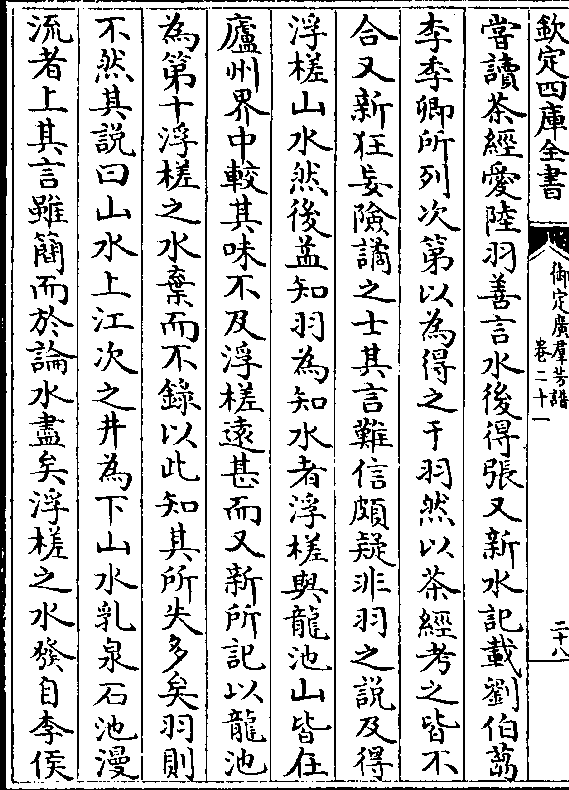 欽定四庫全書
御定廣羣芳譜
卷二十一
二十八
嘗讀茶經愛陸羽善言水後得張又新水記載劉伯芻
李季卿所列次第以為得之于羽然以茶經考之皆不
合又新狂妄險譎之士其言難信頗疑非羽之說及得
浮槎山水然後益知羽為知水者浮槎與龍池山皆在
廬州界中較其味不及浮槎遠甚而又新所記以龍池
為第十浮槎之水棄而不錄以此知其所失多矣羽則
不然其說曰山水上江次之井為下山水乳泉石池漫
流者上其言雖簡而於論水盡矣浮槎之水發自李侯